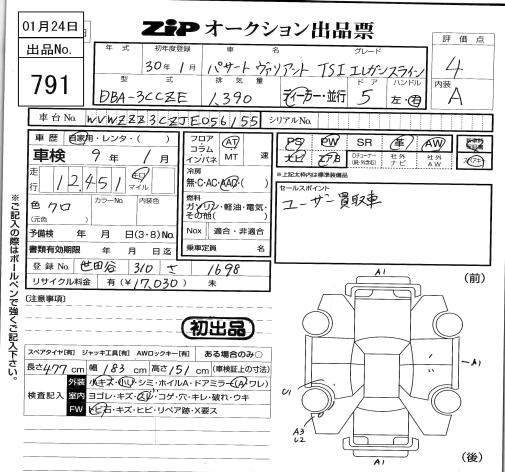 01月24日
出品No.
791
ZIP オークション出品票
評価点
4
内装
A
年式 初年度登録 車名 グレード
30年1月 パサート ヴァリアント TSI エレガンスライン
型式 排気量 ドア ハンドル
DBA-3CCZE 1,390 ディーラー・並行 5 左・右
車台No. WVWZZZ3CZJE056155 シリアルNo.
車歴 自家用・レンタ・( )
車検 9年 1月
走行 12,451 キロ マイル
色 クロ カラーNo. 内装色
(元色)
予備検 年 月 日(3・8)No.
書類有効期限 年 月 日迄
登録No. 世田谷 310 さ 1698
リサイクル料金 有(¥17,030) 未
フロア コラム インパネ AT MT 速
冷房
無・C・AC・AAC・( )
燃料
ガソリン・軽油・電気・その他( )
Nox 適合・非適合
乗車定員 名
PS PW SR 革 AW
ナビ エアB Dチューナー(純・外・含) 社外ナビ 社外AW
*上記太枠内は標準装備品
セールスポイント
ユーザー買取車
※ご記入の際はボールペンで強くご記入下さい。
[注意事項]
初出品
スペアタイヤ[有] ジャッキ工具[有] AWロックキー[有] ある場合のみ○
長さ477cm 幅183cm 高さ151cm (車検証上の寸法)
検査記入
外装 小キズ・小凹・シミ・ホイルA・ドアミラー(A・ワレ)
室内 ヨゴレ・キズ・スレ・コゲ・穴・キレ・破れ・ウキ
FW トビ石・キズ・ヒビ・リペア跡・X要ス
(前)
A1
A1
U1
A3
U2
A1
(後)